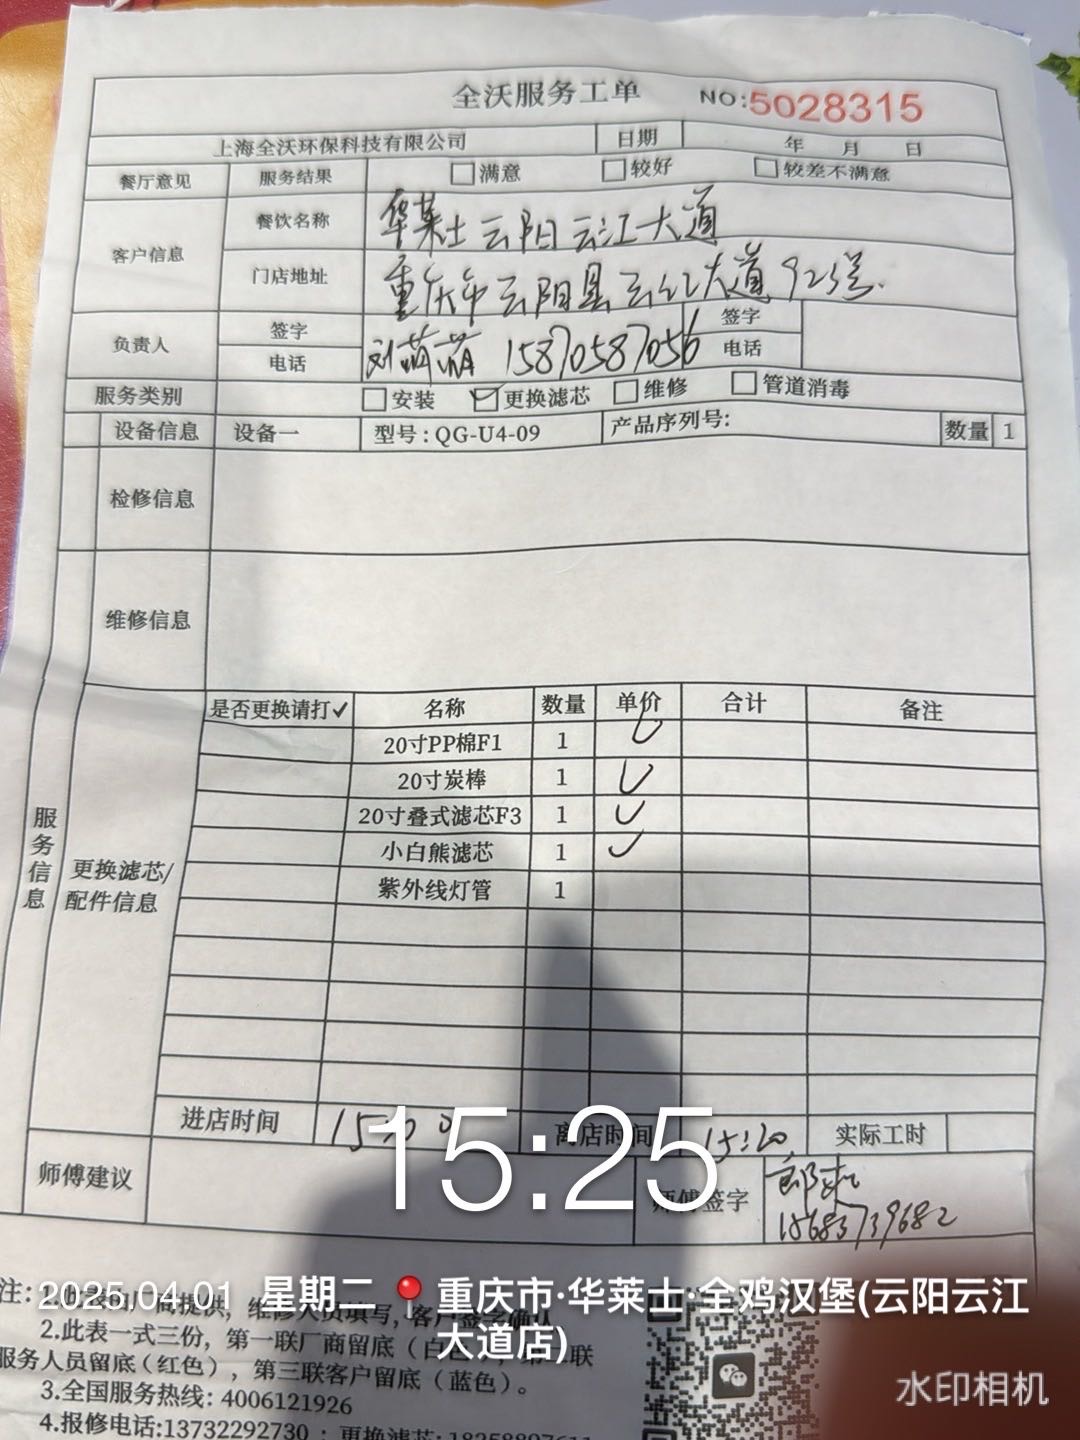 全沃服务工单 NO:5028315
上海全沃环保科技有限公司 日期 年 月 日
餐厅意见 服务结果 满意 较好 较差不满意
客户信息 餐饮名称 华莱士云阳云江大道
门店地址 重庆市云阳县云江大道923号.
负责人 签字 刘萌萌 签字
电话 15870587056 电话
服务类别 安装 ✓更换滤芯 维修 管道消毒
设备信息 设备一 型号:QG-U4-09 产品序列号: 数量 1
检修信息
维修信息
服务信息
更换滤芯/
配件信息
是否更换请打✓ 名称 数量 单价 合计 备注
20寸PP棉F1 1 ✓
20寸炭棒 1 ✓
20寸叠式滤芯F3 1 ✓
小白熊滤芯 1 ✓
紫外线灯管 1
进店时间 离店时间 15:20 实际工时
15:25
师傅建议 师傅签字
15683739682
2025.04.01 星期二 重庆市·华莱士·全鸡汉堡(云阳云江
大道店)
注:
提供,维修人员填写,客户签字确认
2.此表一式三份,第一联厂商留底(白色),第二联
服务人员留底(红色),第三联客户留底(蓝色)。
3.全国服务热线: 4006121926
4.报修电话:13732292730 ; 更换滤芯:
水印相机